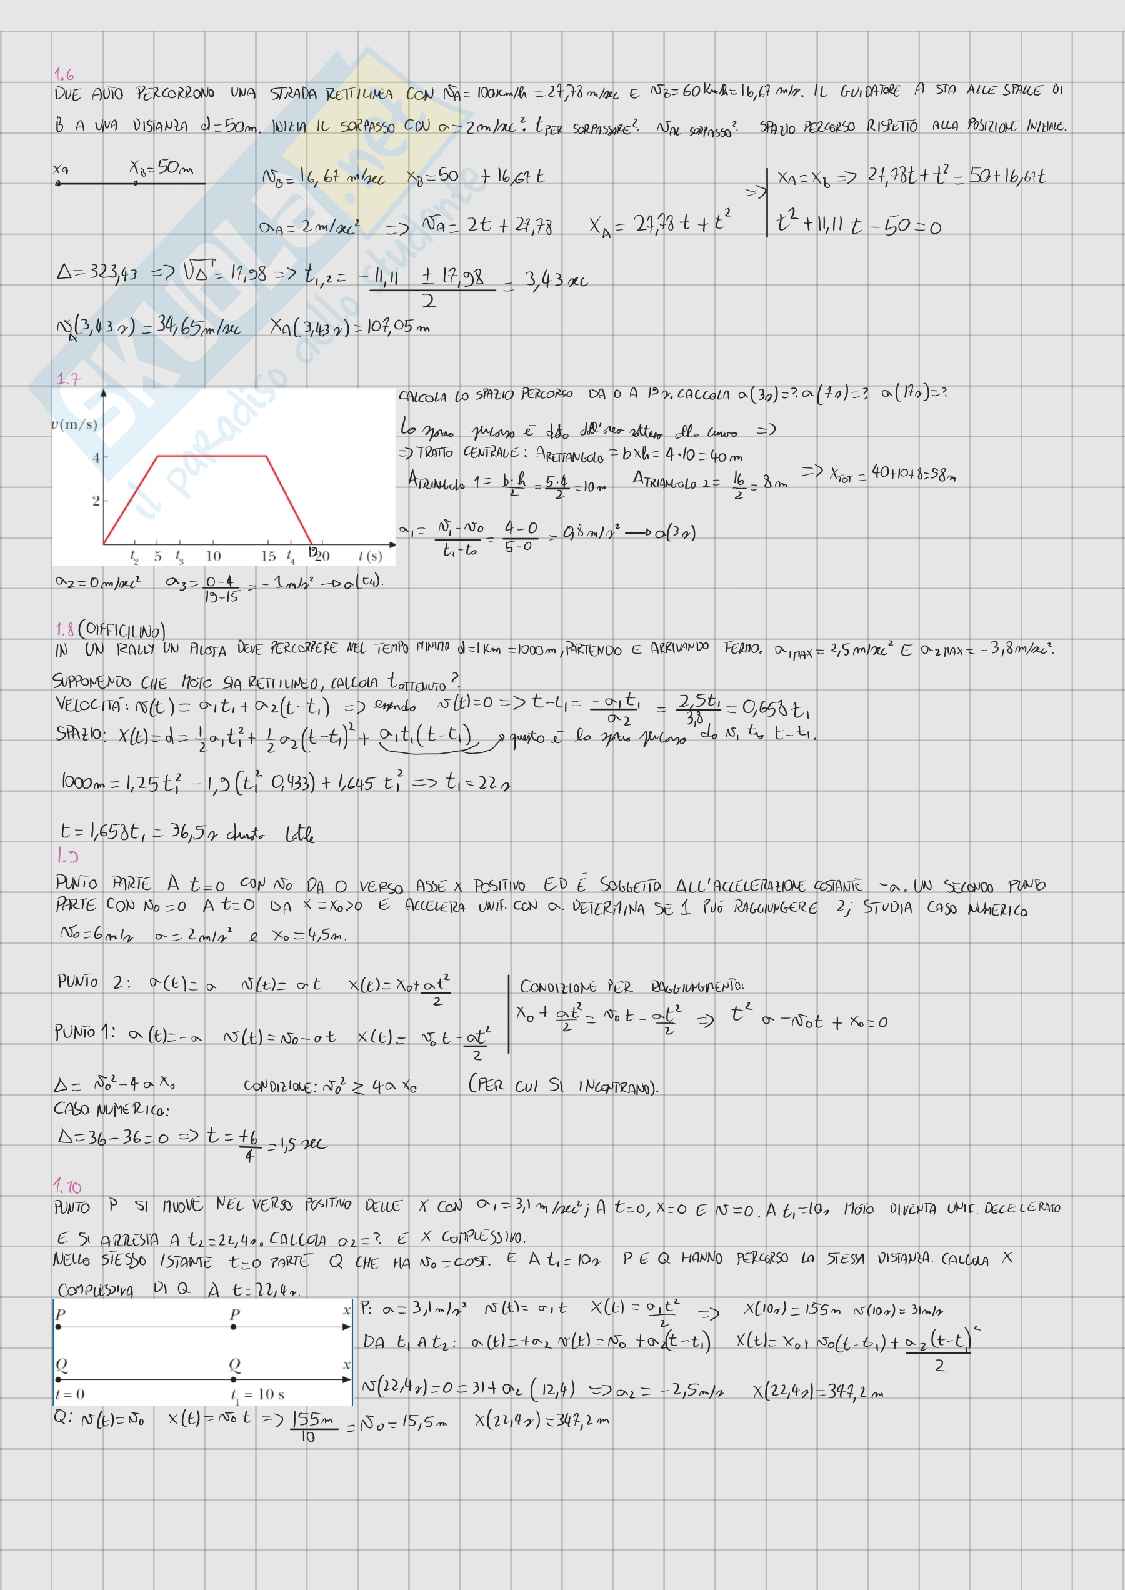 1.6
DUE AUTO PERCORRONO UNA STRADA RETTILINEA CON VA = 100Km/h = 27,78 m/sec E VB = 60 Km/h = 16,67 m/s. IL GUIDATORE A STA ALLE SPALLE DI
B A UNA DISTANZA d=50m. INIZIA IL SORPASSO CON a = 2 m/sec². t PER SORPASSARE? V AL SORPASSO? SPAZIO PERCORSO RISPETTO ALLA POSIZIONE INIZIALE.
XA XB=50m VB = 16,67 m/sec XB = 50 + 16,67 t => XA = XB => 27,78t + t² = 50+16,67t
aA = 2 m/sec² => VA = 2t + 27,78 XA = 27,78 t + t² t² + 11,11 t - 50 = 0
Δ = 323,43 => √Δ = 17,98 => t1,2 = -11,11 ± 17,98 / 2 = 3,43 sec
VA(3,43 s) = 34,65 m/sec XA(3,43 s) = 107,05 m
1.7
CALCOLA LO SPAZIO PERCORSO DA 0 A 19 s. CALCOLA a(3s)=? a(7s)=? a(17s)=?
v(m/s)
4
2
t2 5 t3 10 15 t4 19 20 t(s)
Lo spazio percorso è dato dall'area sottesa alla curva =>
=> TRATTO CENTRALE: ARETTANGOLO = b×h = 4·10 = 40 m
ATRIANGOLO 1 = b·h/2 = 5·4/2 = 10 m ATRIANGOLO 2 = 16/2 = 8 m => XTOT = 40+10+8=58m
a1 = V1-V0 / t1-t0 = 4-0 / 5-0 = 0,8 m/s² → a(3s)
a2 = 0 m/sec² a3 = 0-4 / 19-15 = -1 m/s² → a(t4).
1.8 (DIFFICILINO)
IN UN RALLY UN PILOTA DEVE PERCORRERE NEL TEMPO MINIMO d=1Km=1000m, PARTENDO E ARRIVANDO FERMO. a1MAX = 2,5 m/sec² E a2MAX = -3,8 m/sec².
SUPPONENDO CHE MOTO SIA RETTILINEO, CALCOLA t OTTENUTO?
VELOCITÀ: V(t) = a1t1 + a2(t-t1) => essendo V(t)=0 => t-t1 = -a1t1 / a2 = 2,5t1 / 3,8 = 0,658 t1
SPAZIO: X(t) = d = 1/2 a1t1² + 1/2 a2(t-t1)² + a1t1(t-t1) → questo è lo spazio percorso da V1 tra t-t1.
1000m = 1,25 t1² - 1,9 (t1² 0,433) + 1,645 t1² => t1 = 22 s
t = 1,658t1 = 36,5 s durata totale
1.9
PUNTO PARTE A t=0 CON V0 DA O VERSO ASSE X POSITIVO ED È SOGGETTO ALL'ACCELERAZIONE COSTANTE -a. UN SECONDO PUNTO
PARTE CON V0=0 A t=0 DA X=X0>0 E ACCELERA UNIF. CON a. DETERMINA SE 1 PUÒ RAGGIUNGERE 2; STUDIA CASO NUMERICO
V0=6m/s a=2m/s² e X0=4,5m.
PUNTO 2: a(t) = a V(t) = at X(t) = X0 + at²/2 CONDIZIONE PER RAGGIUNGIMENTO:
X0 + at²/2 = V0t - at²/2 => t²a - V0t + X0 = 0
PUNTO 1: a(t) = -a V(t) = V0 - at X(t) = V0t - at²/2
Δ = V0² - 4aX0 CONDIZIONE: V0² ≥ 4aX0 (PER CUI SI INCONTRANO).
CASO NUMERICO:
Δ = 36 - 36 = 0 => t = +6/4 = 1,5 sec
1.10
PUNTO P SI MUOVE NEL VERSO POSITIVO DELLE X CON a1 = 3,1 m/sec²; A t=0, X=0 E V=0. A t1=10s MOTO DIVENTA UNIF. DECELERATO
E SI ARRESTA A t2=22,4s. CALCOLA a2=? E X COMPLESSIVO.
NELLO STESSO ISTANTE t=0 PARTE Q CHE HA V0=COST. E A t1=10s P E Q HANNO PERCORSO LA STESSA DISTANZA. CALCOLA X
COMPLESSIVA DI Q A t=22,4s.
P P x
Q Q x
t = 0 t1 = 10 s
P: a = 3,1 m/s² V(t) = a1t X(t) = a1t²/2 => X(10s) = 155 m V(10s) = 31 m/s
DA t1 A t2: a(t) = +a2 V(t) = V0 + a2(t-t1) X(t) = X0 + V0(t-t1) + a2(t-t1)²/2
V(22,4s) = 0 = 31 + a2 (12,4) => a2 = -2,5 m/s X(22,4s) = 347,2 m
Q: V(t) = V0 X(t) = V0 t => 155m/10 = V0 = 15,5 m X(22,4s) = 347,2 m
SKUOLA.net
il paradiso dello studente